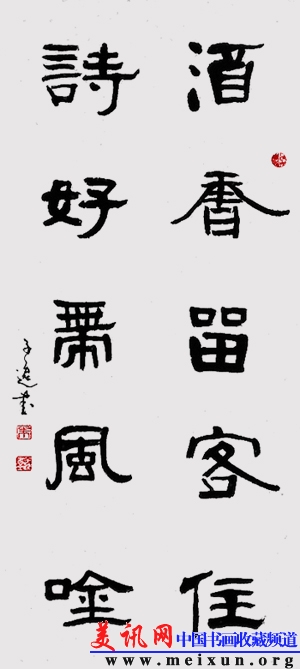 酒香留客住
詩好帶風唫
美讯网 中国书画收藏频道
www.meixun.org